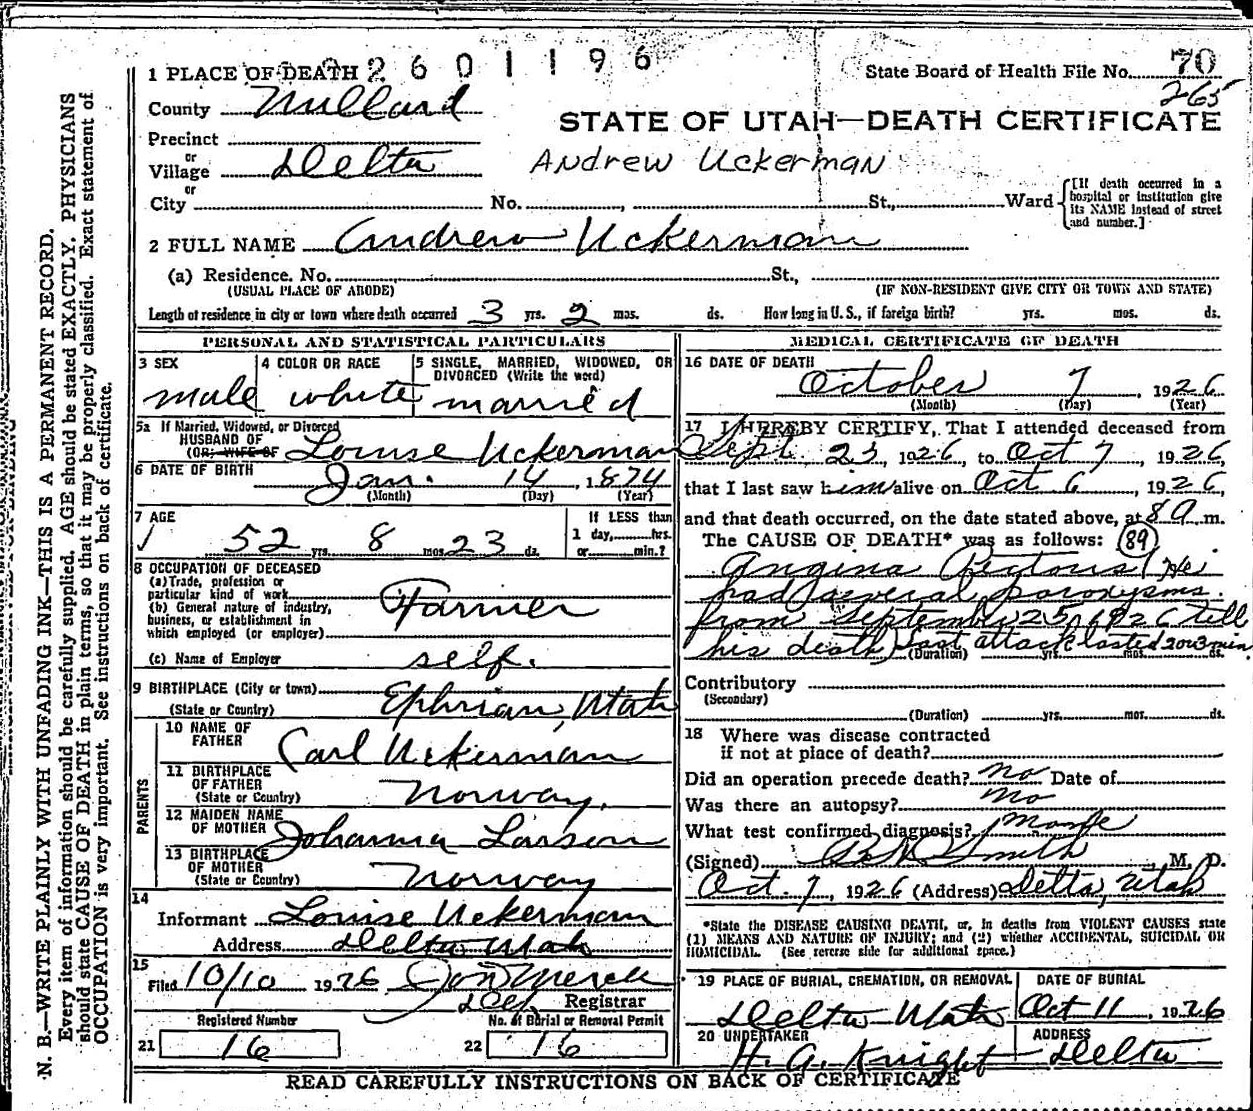 1 PLACE OF DEATH 2601196
State Board of Health File No. 70
265
County Millard
STATE OF UTAH—DEATH CERTIFICATE
Precinct
or
Village Delta
Andrew Uckerman
or
City No. , St., Ward
[If death occurred in a
hospital or institution give
its NAME instead of street
and number.]
2 FULL NAME Andrew Uckerman
(a) Residence. No. St.,
(USUAL PLACE OF ABODE) (IF NON-RESIDENT GIVE CITY OR TOWN AND STATE)
Length of residence in city or town where death occurred 3 yrs. 2 mos. ds. How long in U. S., if foreign birth? yrs. mos. ds.
PERSONAL AND STATISTICAL PARTICULARS
3 SEX
male
4 COLOR OR RACE
white
5 SINGLE, MARRIED, WIDOWED, OR
DIVORCED (Write the word)
married
5a If Married, Widowed, or Divorced
HUSBAND OF
(OR) WIFE OF Louise Uckerman
6 DATE OF BIRTH
Jan. 14, 1874
(Month) (Day) (Year)
7 AGE
52 yrs. 8 mos. 23 ds.
If LESS than
1 day, hrs.
or min.?
8 OCCUPATION OF DECEASED
(a) Trade, profession or
particular kind of work Farmer
(b) General nature of industry,
business, or establishment in
which employed (or employer)
(c) Name of Employer self.
9 BIRTHPLACE (City or town)
(State or Country) Ephriam, Utah
PARENTS
10 NAME OF
FATHER Carl Uckerman
11 BIRTHPLACE
OF FATHER
(State or Country) Norway.
12 MAIDEN NAME
OF MOTHER Johanna Larson
13 BIRTHPLACE
OF MOTHER
(State or Country) Norway
14
Informant Louise Uckerman
Address Delta Utah
15
Filed 10/10 1926
Registrar
Registered Number
21 16
No. of Burial or Removal Permit
22 16
MEDICAL CERTIFICATE OF DEATH
16 DATE OF DEATH
October 7, 1926
(Month) (Day) (Year)
17 I HEREBY CERTIFY, That I attended deceased from
Sept. 23, 1926, to Oct 7, 1926,
that I last saw him alive on Oct 6, 1926,
and that death occurred, on the date stated above, at 8 a m.
The CAUSE OF DEATH* was as follows: 89
Angina Pectoris (He
had several paroxysms
from September 25, 1926 till
his death) last attack lasted 2 or 3 min
(Duration) yrs. mos. ds.
Contributory
(Secondary)
(Duration) yrs. mos. ds.
18 Where was disease contracted
if not at place of death?
Did an operation precede death? no Date of
Was there an autopsy? no
What test confirmed diagnosis?
(Signed) Smith, M. D.
Oct. 7, 1926 (Address) Delta, Utah
*State the DISEASE CAUSING DEATH, or, in deaths from VIOLENT CAUSES state
(1) MEANS AND NATURE OF INJURY; and (2) whether ACCIDENTAL, SUICIDAL OR
HOMICIDAL. (See reverse side for additional space.)
19 PLACE OF BURIAL, CREMATION, OR REMOVAL
Delta Utah
DATE OF BURIAL
Oct 11, 1926
20 UNDERTAKER
H. A. Knight
ADDRESS
Delta
READ CAREFULLY INSTRUCTIONS ON BACK OF CERTIFICATE
N. B.—WRITE PLAINLY WITH UNFADING INK—THIS IS A PERMANENT RECORD.
Every item of information should be carefully supplied. AGE should be stated EXACTLY. PHYSICIANS
should state CAUSE OF DEATH in plain terms, so that it may be properly classified. Exact statement of
OCCUPATION is very important. See instructions on back of certificate.